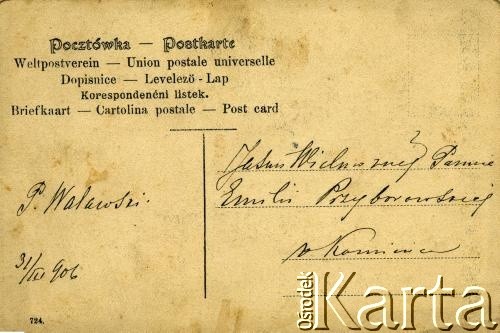 Pocztówka — Postkarte
Weltpostverein — Union postale universelle
Dopisnice — Levelezö - Lap
Korespondenčni listek.
Briefkaart — Cartolina postale — Post card
Jaśnie Wielmożnej Pannie
Emilii Przyborowskiej
P. Walewski.
w
31/III 906
724.
Ośrodek
Karta